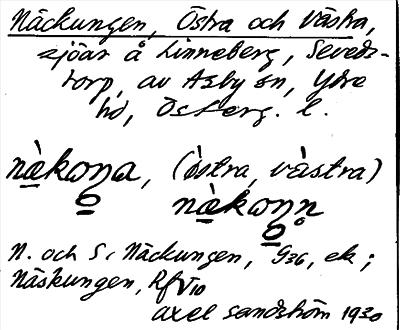 Näckungen, Östra och Västra,
sjöar å Linneberg, Seveds-
torp, av Asby sn, Ydre
hd, Österg. l.
nàkoŋa, (òstra, vàstra)
nàkoŋn̥
N. och S. Näckungen, G36, ek;
Näskungen, Rf V10
Axel Sandström 1930